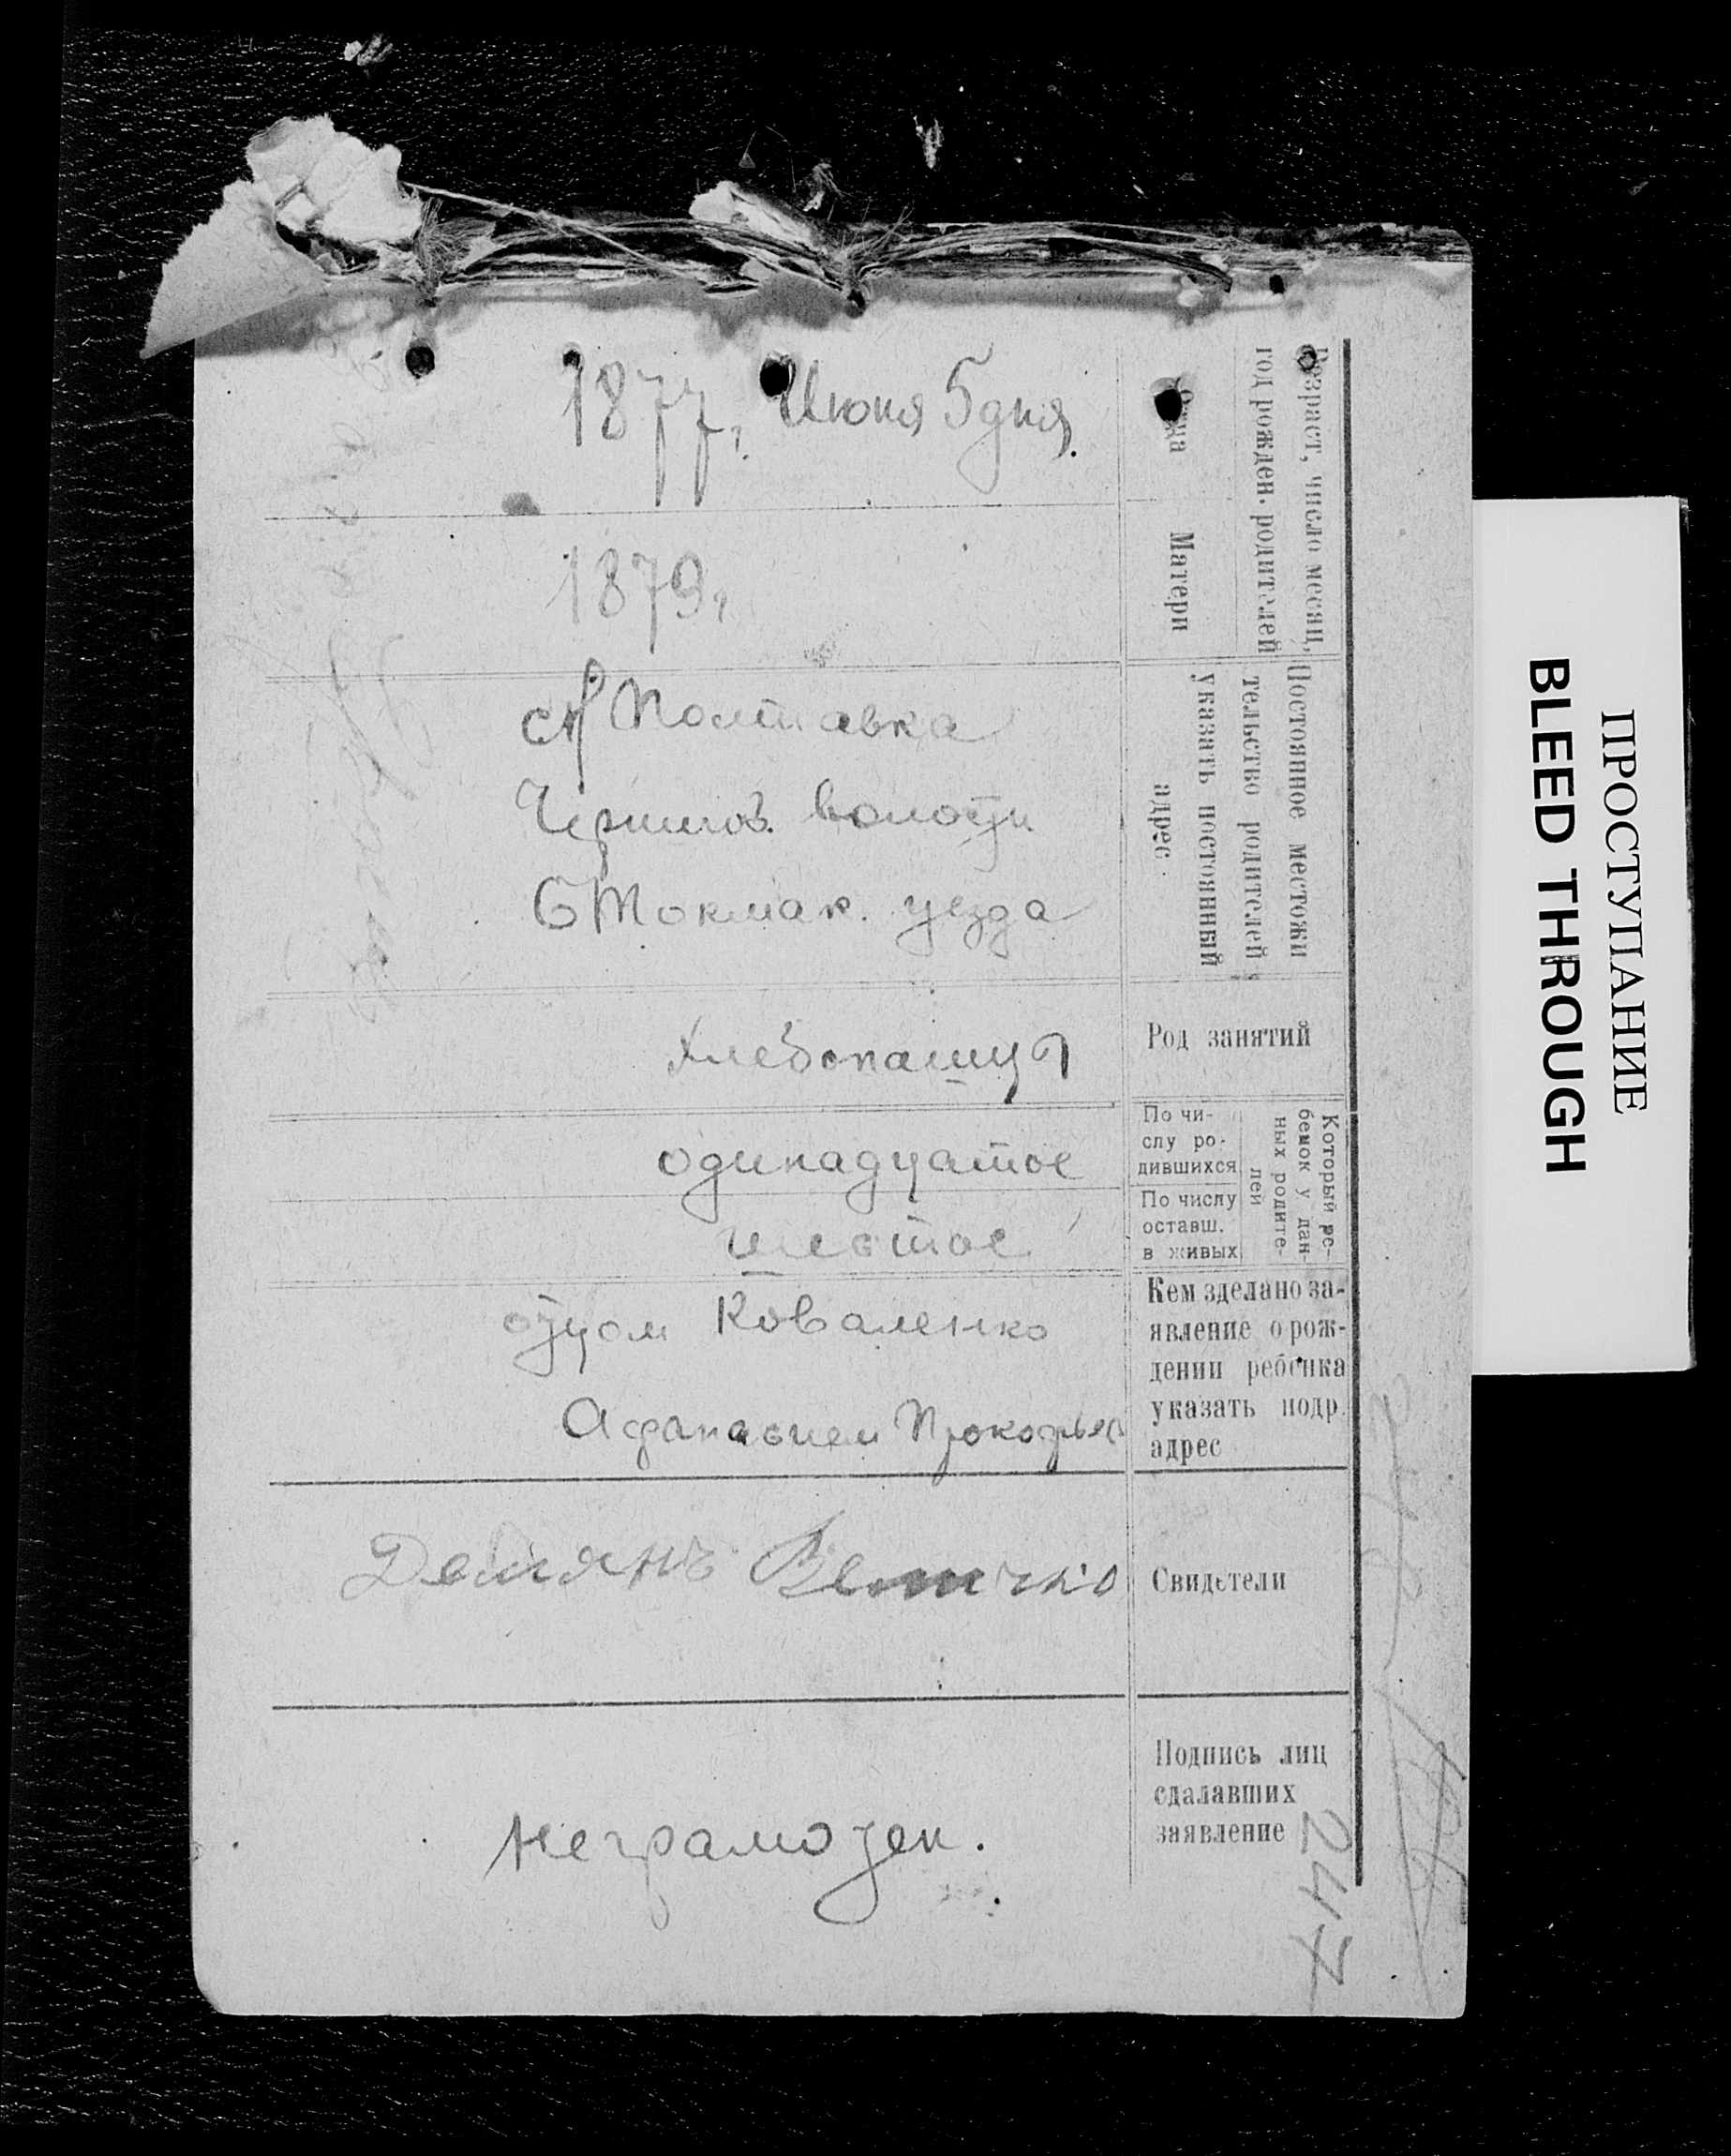 Возраст, число месяц,
год рожден. родителей
Отца
1877, Июня 5 дня.
Матери
1879,
Постоянное местожи
тельство родителей
указать постоянный
адрес.
Полтавка
Чернигов. волости
Б Токмак. уезда
Род занятий
Хлебопашц
Который ре-
бенок у дан-
ных родите-
лей
По чи-
слу ро-
дившихся
одинадцатое
По числу
оставш.
в живых
шестое
Кем зделано за-
явление о рож-
дении ребенка
указать подр.
адрес
отцом Коваленко
Афанасием Прокофьев
Свидетели
Демянъ Величко
Подпись лиц
сдалавших
заявление
Неграмотен.
247
ПРОСТУПАНИЕ
BLEED THROUGH